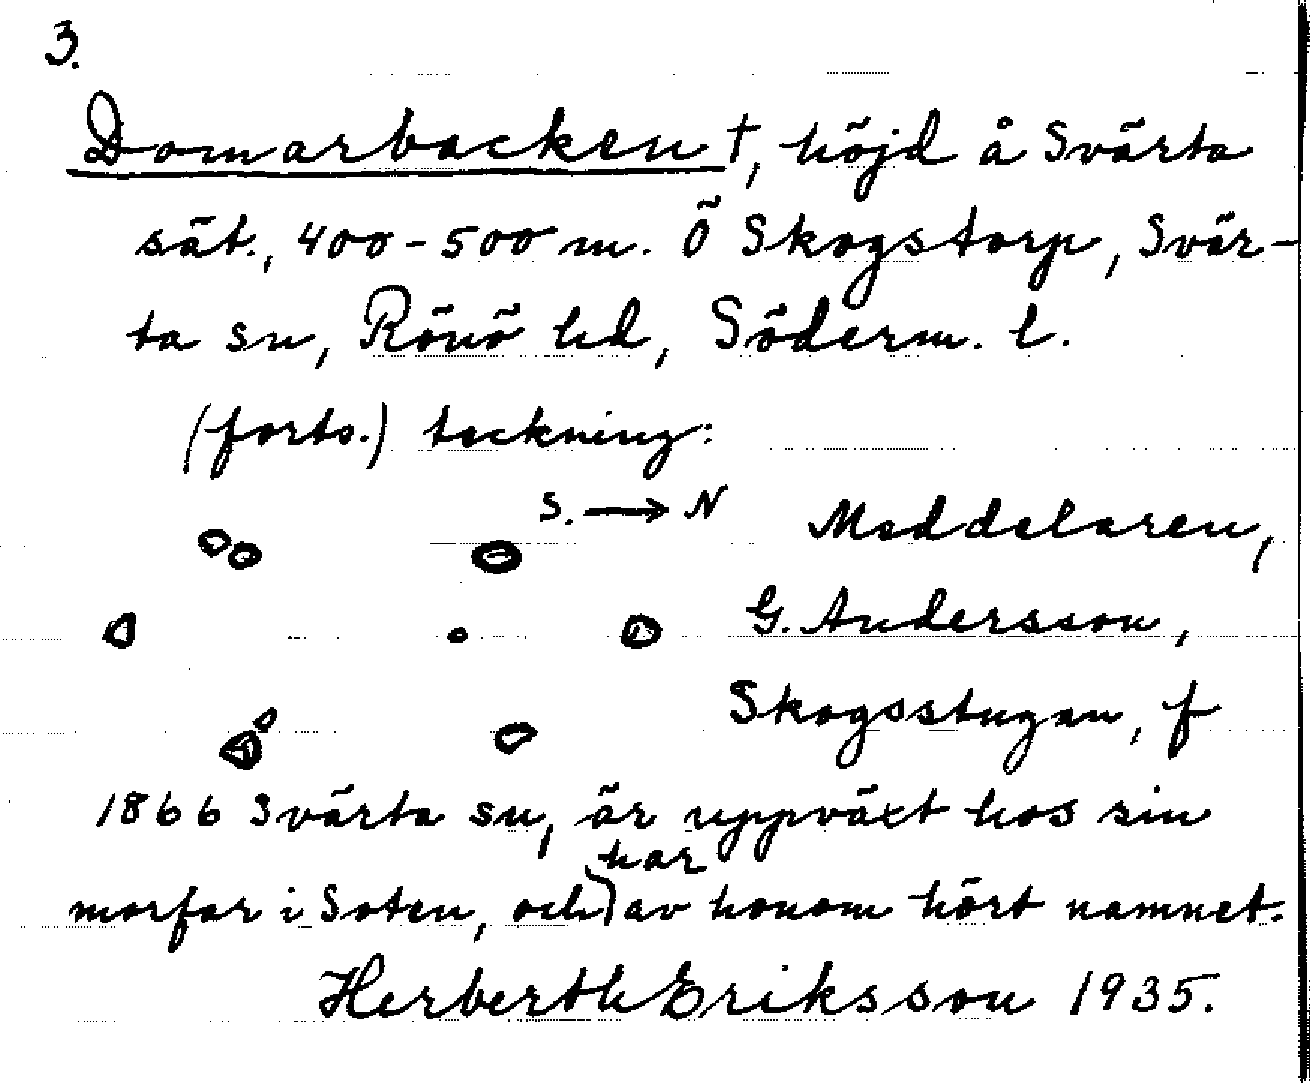 3.
Domarbacken †, höjd å Svärta
sät., 400-500 m. Ö Skogstorp, Svär-
ta sn, Rönö hd, Söderm. l.
(forts.) teckning:
S. → N
Meddelaren,
G. Andersson,
Skogsstugan, f
1866 Svärta sn, är uppväxt hos sin
morfar i Soten, och har av honom hört namnet.
Herberth Eriksson 1935.